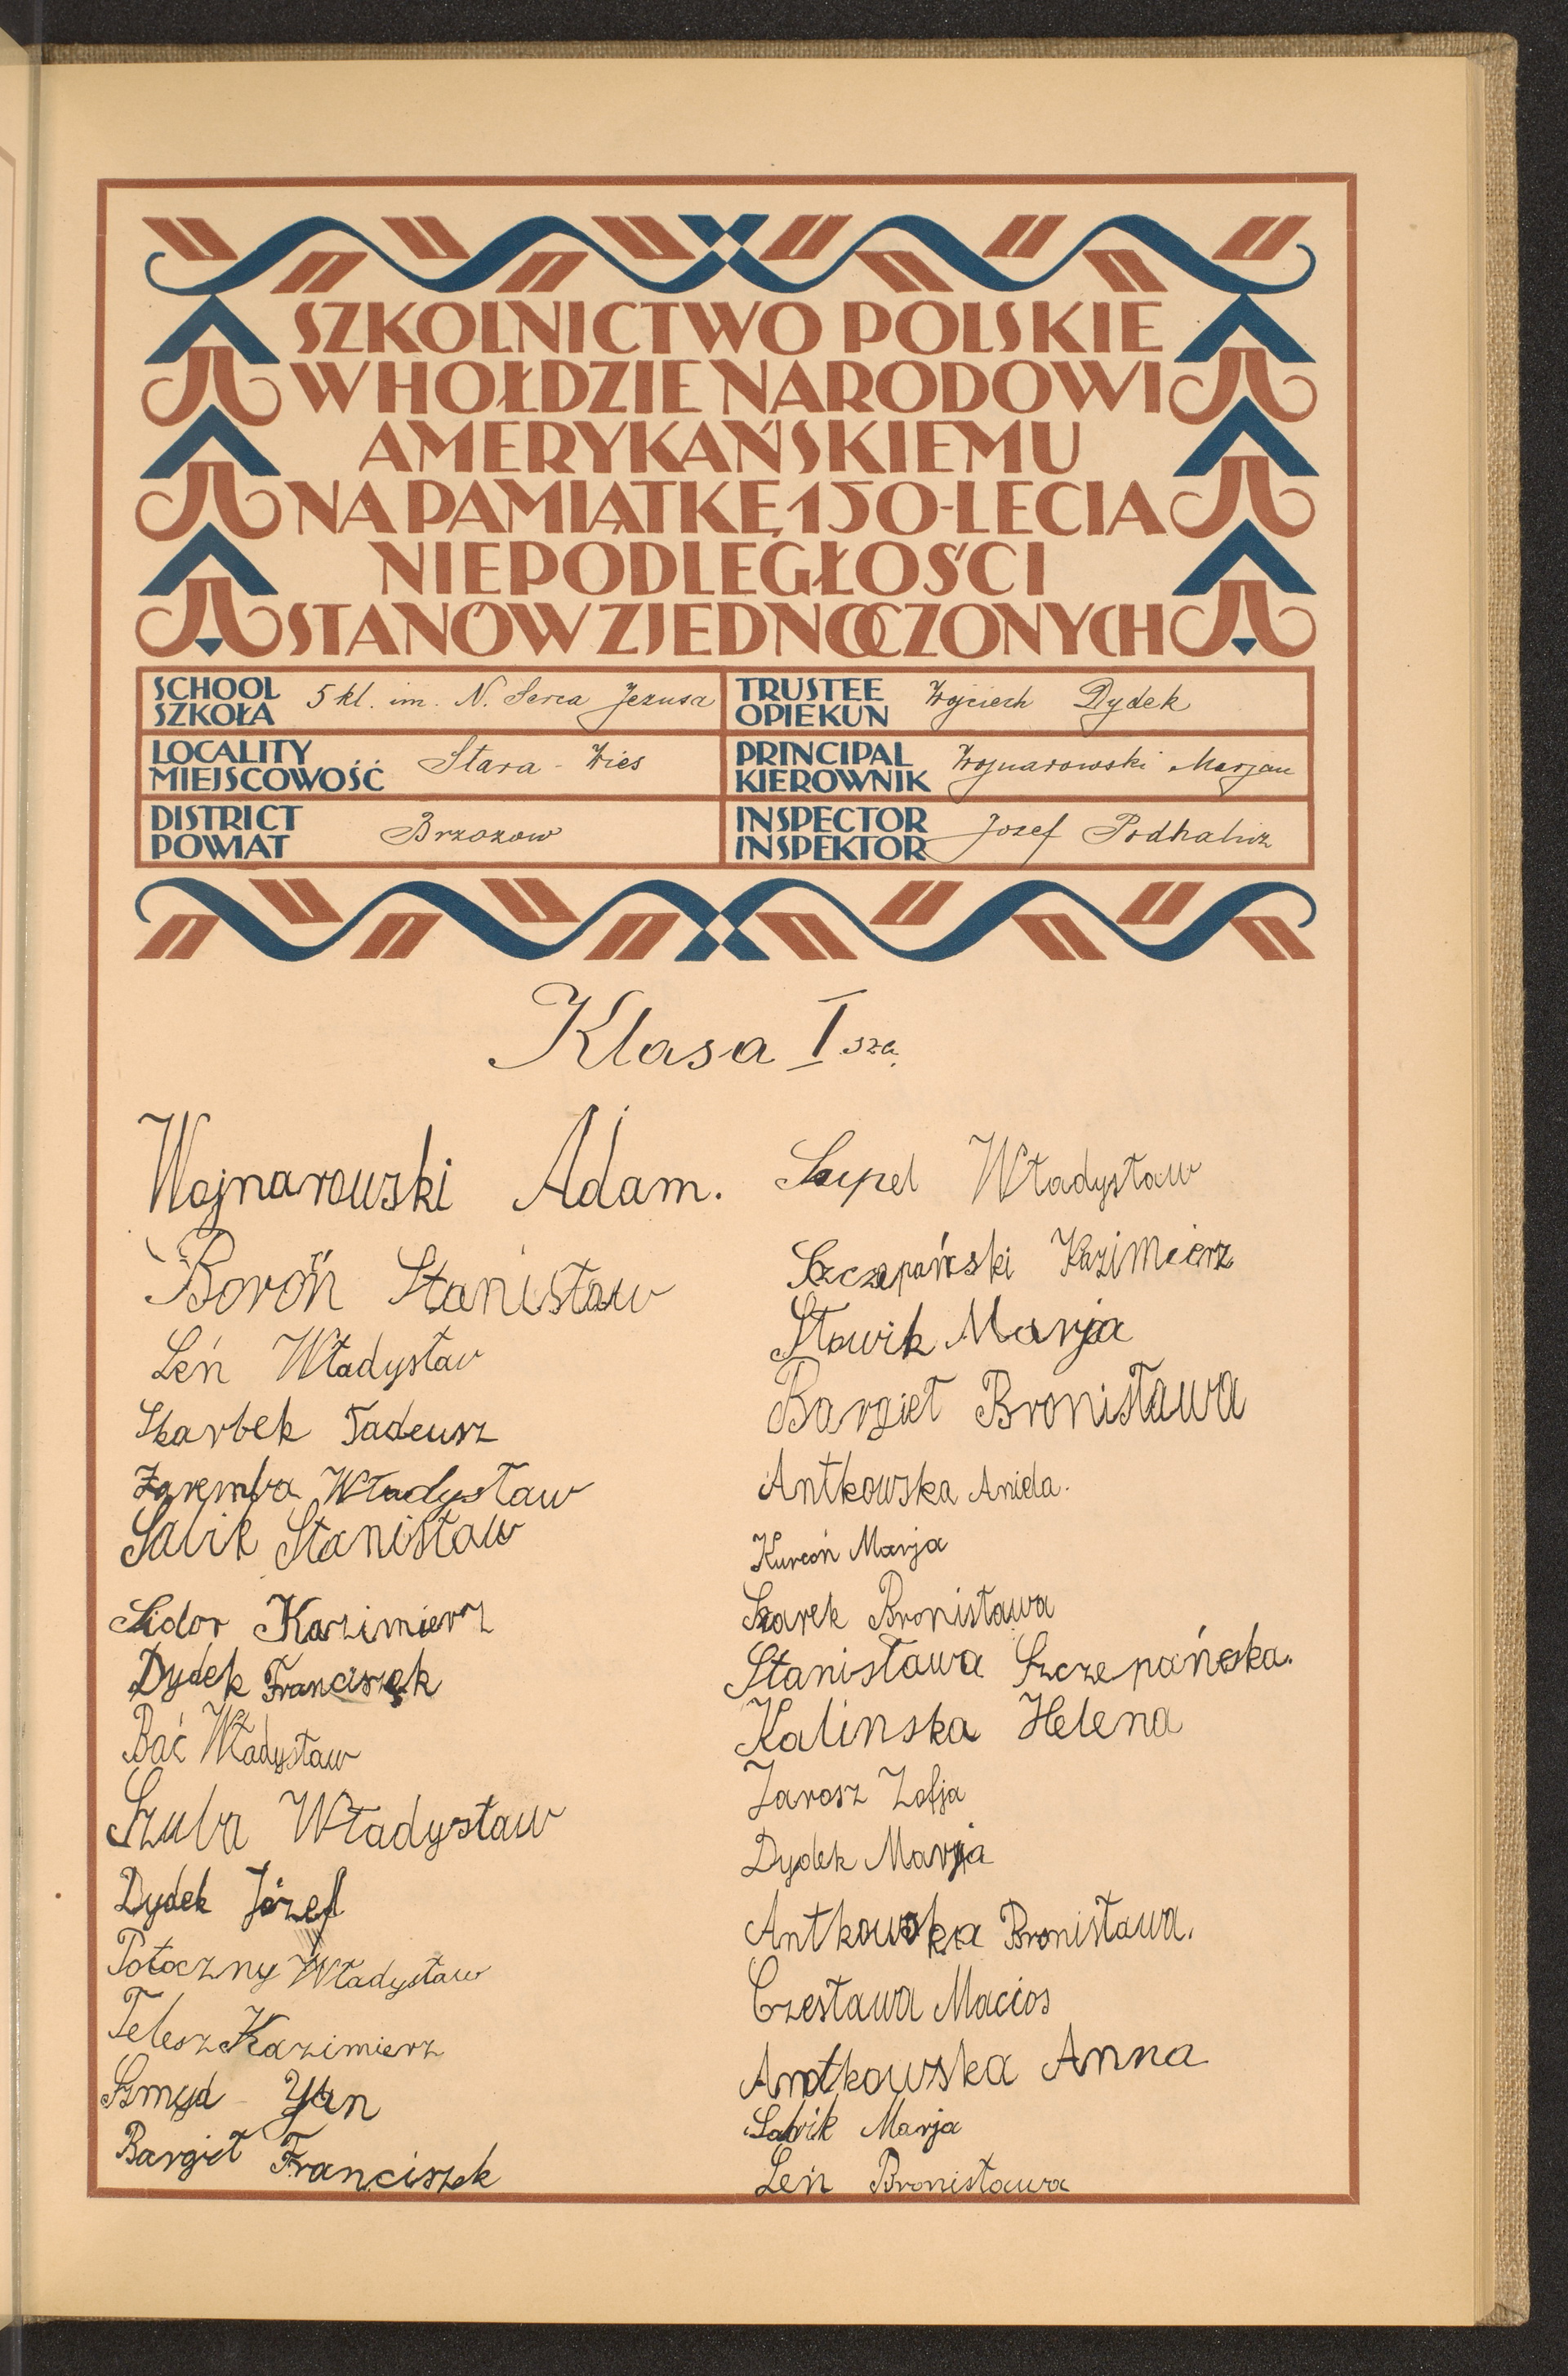 SZKOLNICTWO POLSKIE
W HOŁDZIE NARODOWI
AMERYKAŃSKIEMU
NA PAMIĄTKĘ 150-LECIA
NIEPODLEGŁOŚCI
STANÓW ZJEDNOCZONYCH
SCHOOL
SZKOŁA
5 kl. im. N. Serca Jezusa
TRUSTEE
OPIEKUN
Wojciech Dydek
LOCALITY
MIEJSCOWOŚĆ
Stara - Wieś
PRINCIPAL
KIEROWNIK
Wojnarowski Marjan
DISTRICT
POWIAT
Brzozow
INSPECTOR
INSPEKTOR
Jozef Podhalicz
Klasa I sza.
Wojnarowski Adam.
Boroń Stanisław
Leń Władysław
Skarbek Tadeusz
Zaremba Władysław
Sabik Stanisław
Sidor Kazimierz
Dydek Franciszek
Bać Władysław
Szuba Władysław
Dydek Józef
Potoczny Władysław
Telesz Kazimierz
Szmyd Jan
Bargieł Franciszek
Supel Władysław
Szczepański Kazimierz
Sławik Marja
Bargieł Bronisława
Antkowska Aniela.
Kurcoń Marja
Szarek Bronisława
Stanisława Szczepańska.
Kalinska Helena
Jarosz Zofja
Dydek Marja
Antkowska Bronisława.
Czesława Macios
Antkowska Anna
Sabik Marja
Leń Bronisława